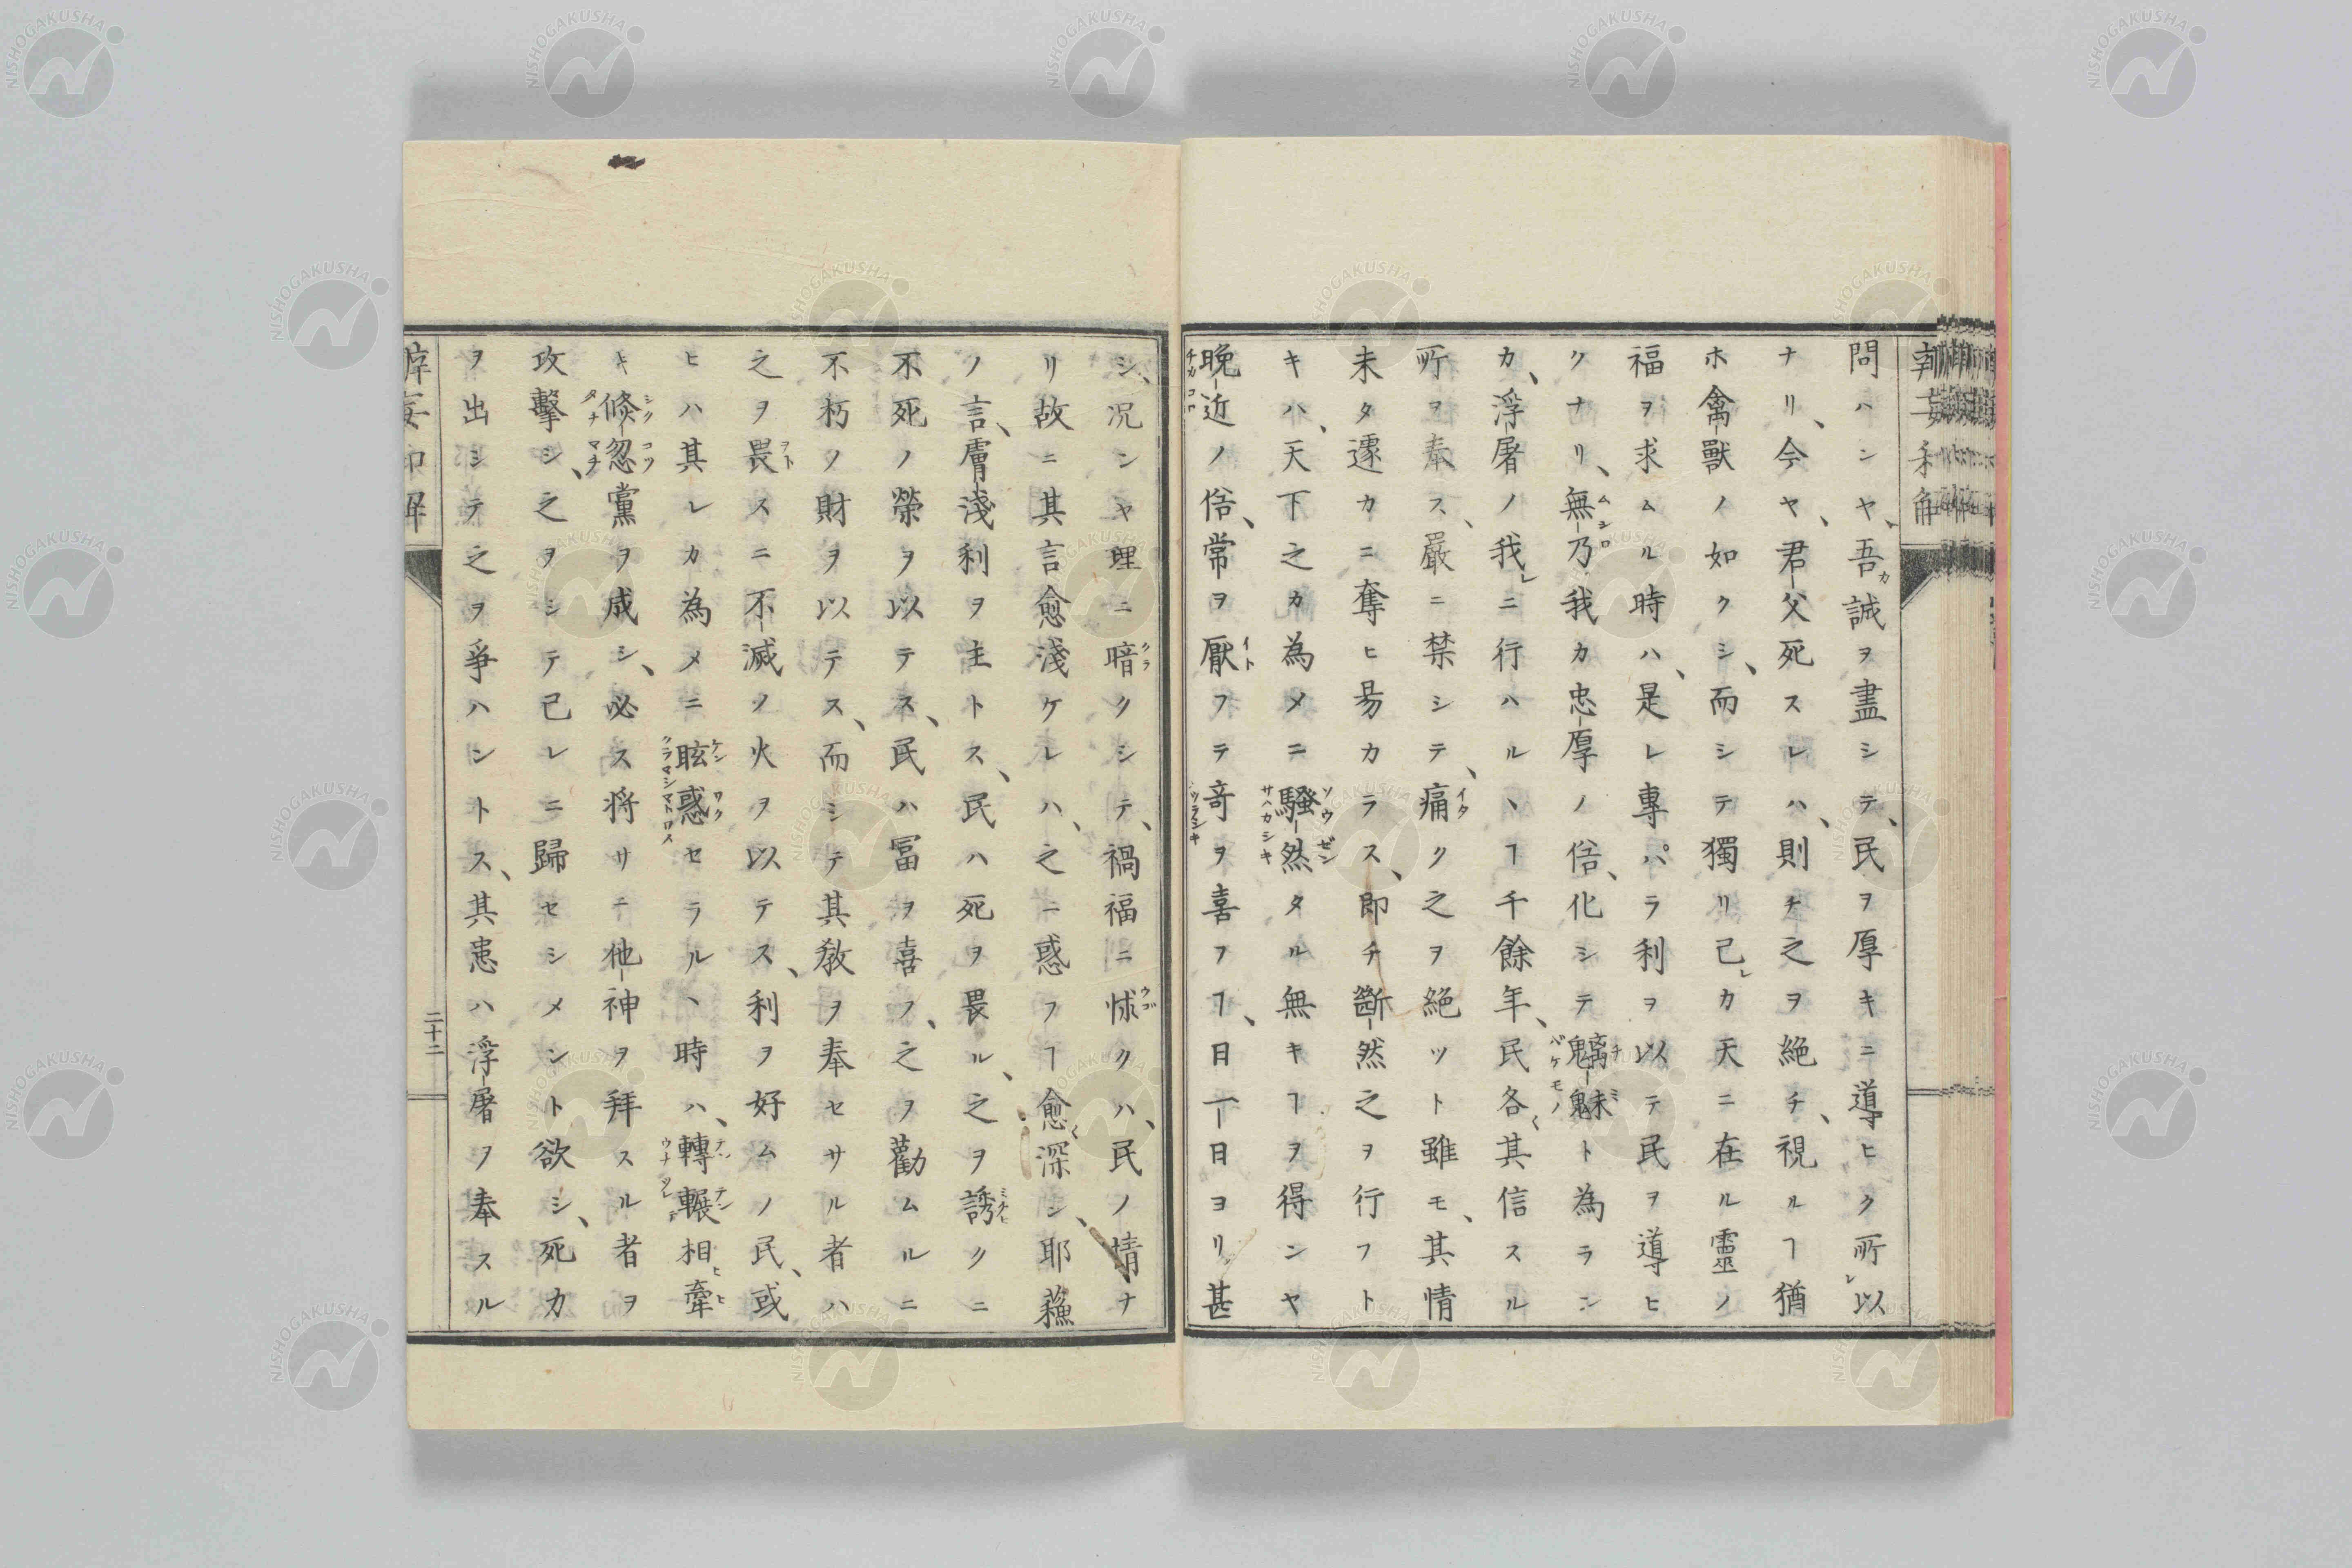 問ハンヤ、吾カ誠ヲ盡シテ、民ヲ厚キニ導ヒク所レ以
ナリ、今ヤ、君父死スレハ、則チ之ヲ絶チ、視ルヿ猶
ホ禽獸ノ如クシ、而シテ獨リ己レカ天ニ在ル靈ノ
福ヲ求ムル時ハ、是レ專パラ利ヲ以テ民ヲ導ヒ
クナリ、無乃我カ忠厚ノ俗、化シテ魑魅ト為ラン
カ、浮屠ノ我レニ行ハルヽヿ千餘年、民各〻其信スル
所ヲ奉ス、嚴ニ禁シテ、痛ク之ヲ絶ツト雖モ、其情
未タ遽カニ奪ヒ昜カラス、即チ斷然之ヲ行フト
キハ、天下之カ為メニ騷然タル無キヿヲ得ンヤ
晩近ノ俗、常ヲ厭フテ奇ヲ喜フヿ、日一日ヨリ甚
シ、况ンヤ理ニ暗クシテ、禍福ニ怵クハ、民ノ情ナ
リ故ニ其言愈淺ケレハ、之ニ惑フヿ愈〻深シ、耶蘓
ノ言、膚淺利ヲ主トス、民ハ死ヲ畏ル、之ヲ誘クニ
不死ノ榮ヲ以テス、民ハ冨ヲ喜フ、之ヲ勸ムルニ
不朽ノ財ヲ以テス、而シテ其敎ヲ奉セサル者ハ
之ヲ畏スニ不滅ノ火ヲ以テス、利ヲ好ムノ民、或
ヒハ其レカ為メニ眩惑セラルヽ時ハ、轉輾相牽
キ倏忽黨ヲ成シ、必ス將サニ他神ヲ拜スル者ヲ
攻擊シ、之ヲシテ己レニ歸セシメント欲シ、死力
ヲ出シテ之ヲ爭ハントス、其患ハ浮屠ヲ奉スル
二十二
NISHOGAKUSHA